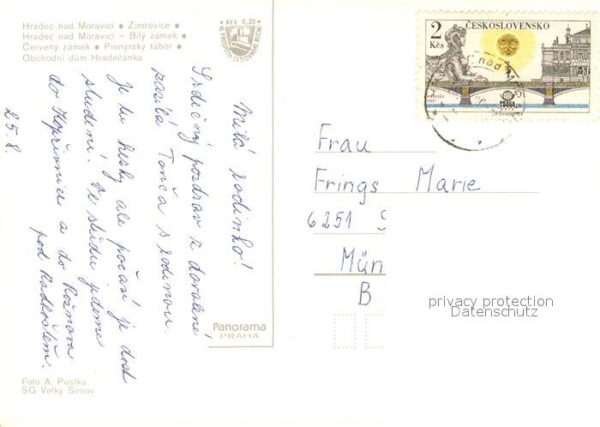 Hradec nad Moravicí ● Žimrovice
Hradec nad Moravicí – Bílý zámek ●
Červený zámek ● Pionýrský tábor ●
Obchodní dům Hradečanka
Kčs 0,20
Milá rodinko!
Srdečný pozdrav z dovolené
zasílá Tonča s rodinou.
Je tu hezky ale počasí je dost
studené. Ve středu jedeme
do Kopřivnice a do Rožnova
pod Radhoštěm.
25.8.
Panorama
PRAHA
Foto A. Pustka
SG Velký Šenov
2
Kčs
ČESKOSLOVENSKO
PRAGA
nad
Frau
Frings Marie
6251 S
Mün
B
privacy protection
Datenschutz